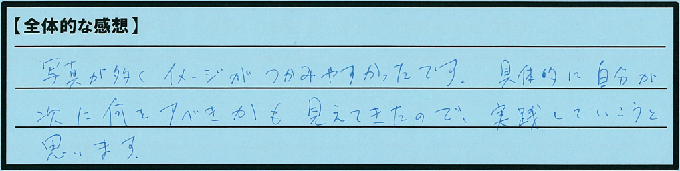 【全体的な感想】
写真が多くイメージがつかみやすかったです。具体的に自分が
次に何をすべきかも見えてきたので、実践していこうと
思います。